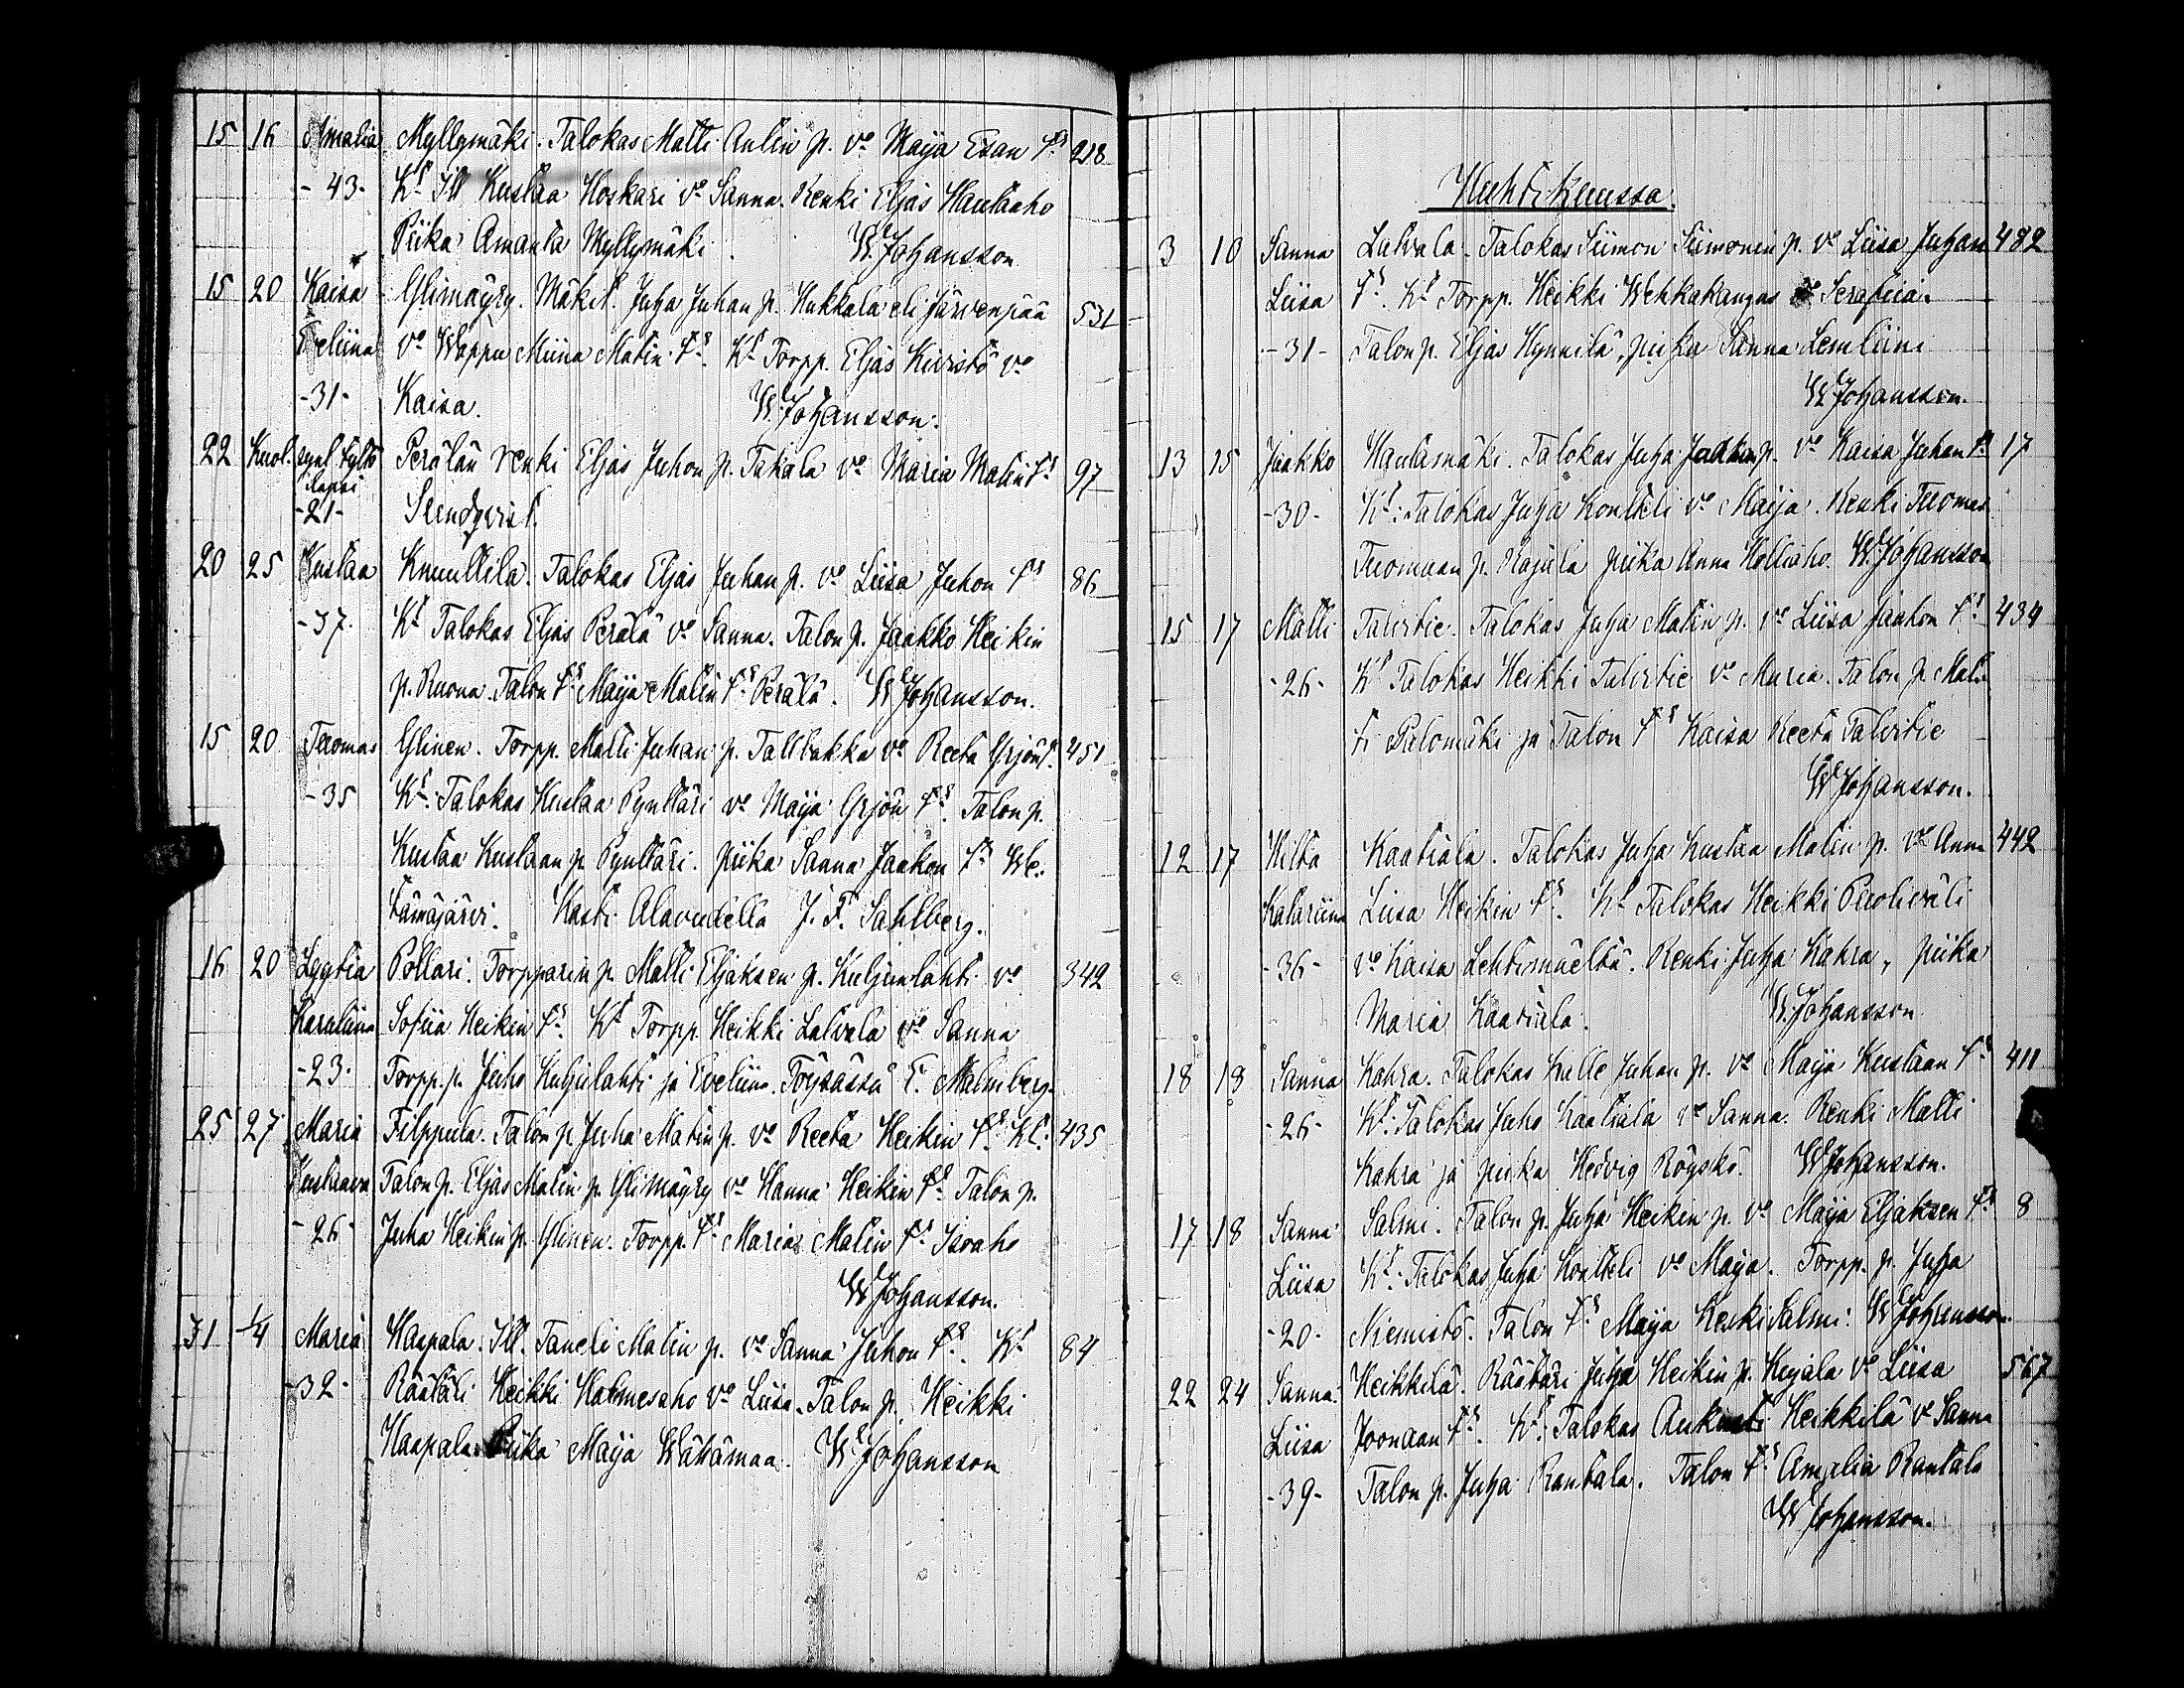 15 16 Amalia Myllymäki. Talokas Matti Antin p. vo Maija Esan trs 218
- 43 - Kt Itll Kustaa Koskari vo Sanna. Renki Eljas Hautaaho
Piika Amanta Myllymäki. W. Johansson
15 20 Kaisa Ylimäyry. Mäkit. Juha Juhan p. Hakkala eli Järvenpää 531
Eveliina vo Wappu Miina Matin trs. Kt Torpp. Eljas Kivistö vo
- 31 - Kaisa. W. Johansson.
22 Kuol. synt. tyttö Perälän renki Eljas Juhon p. Takala vo Maria Matin trs 97
lapsi
- 21 - Stendqvist.
20 25 Kustaa Knuuttila. Talokas Eljas Juhan p. vo Liisa Juhon trs 86
- 37. Kt Talokas Eljas Perälä vo Sanna. Talon p. Jaakko Heikin
p. Ruona. Talon trs Maija Matin trs Perälä. W. Johansson.
15 20 Tuomas Ylinen. Torpp. Matti Juhan p. Tallbakka vo Reeta Yrjön t. 451
- 35 Kt: Talokas Kustaa Pynttäri vo Maija Yrjön trs. Talon p.
Kustaa Kustaan p. Pynttäri. piika Sanna Jaakon trs We-
tämäjärvi. Kasti Alavudella J. F. Sahlberg.
16 20 Lyytia Pollari. Torpparin p. Matti Eljaksen p. Kuljunlahti vo 342
Karuliina Sofiia Heikin trs. Kt Torpp. Heikki Latvala vo Sanna
- 23 - Torpp. p. Juho Kuljulahti ja Eveliina. Töysässä E. Malmberg.
25 27 Maria Filppula. Talon p. Juha Matin p. vo Reeta Heikin trs. Kt. 435
Kustaava Talon p. Eljas Matin p. Ylimäyry vo Hanna Heikin trs. Talon p.
- 26 - Juha Heikin p. Ylinen. Torpp. trs Maria Matin trs Isoaho
W. Johansson.
31 1/4 Maria Haapala. Itll. Taneli Matin p. vo Sanna Juhon trs. Kt 84
- 32 - Räätäli Heikki Halmesaho vo Liisa. Talon p. Heikki
Haapala. Piika Maija Wätämaa. W. Johansson
Huhtikuussa.
3 10 Sanna Latvala. Talokas Siimon Siimonin p. vo Liisa Juhan 482
Liisa trs. Kt Torpp. Heikki Wehkakangas vo Serafiia.
- 31 - Talon p. Eljas Hynnilä, piika Sanna Lemliini
W. Johansson.
13 15 Jaakko Hautamäki. Talokas Juha Jaakon p. vo Kaisa Juhan t. 17
- 30 - Kt: Talokas Juha Kontteli vo Maija. Renki Tuomas
Tuomaan p. Rajala piika Anna Hotiaho. W. Johansson
15 17 Matti Talvitie. Talokas Juha Matin p. vo Liisa Jaakon trs 434
- 26 - Kt Talokas Heikki Talvitie vo Maria. Talon p. Mat-
ti Palomäki ja Talon trs Kaisa Reeta Talvitie
W. Johansson.
12 17 Hilta Kaatiala. Talokas Juha Kustaa Matin p. vo Anna 442
Katariina Liisa Heikin trs. Kt Talokas Heikki Puoliväli
- 36 - vo Kaisa Lehtimäeltä. Renki Juha Kahra, piika
Maria Kaatiala. W. Johansson
18 18 Sanna Kahra. Talokas Kalle Juhan p. vo Maija Kustaan trs 411
- 26 - Kt: Talokas Juho Kaatiala vo Sanna. Renki Matti
Kahra ja piika Hedvig Röyskö. W. Johansson.
17 18 Sanna Salmi. Talon p. Juha Heikin p. vo Maija Eljaksen trs 8
Liisa Kt: Talokas Juha Kontteli vo Maija. Torpp. p. Juha
- 20 - Niemistö. Talon trs Maija Keski Salmi. W. Johansson.
22 24 Sanna Heikkilä. Räätäri Juha Heikin p. Kujala vo Liisa 567
Liisa Joonaan trs. Kt: Talokas Aukusti Heikkilä vo Sanna
- 39 - Talon p. Juha Rantala. Talon trs Amalia Rantala
W. Johansson.